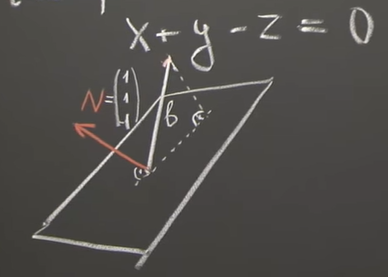 x + y - z = 0
N = (1
1
-1)
b